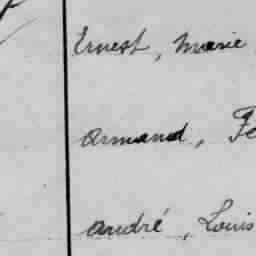 Ernest, Marie
Armand, Fe
André, Louis